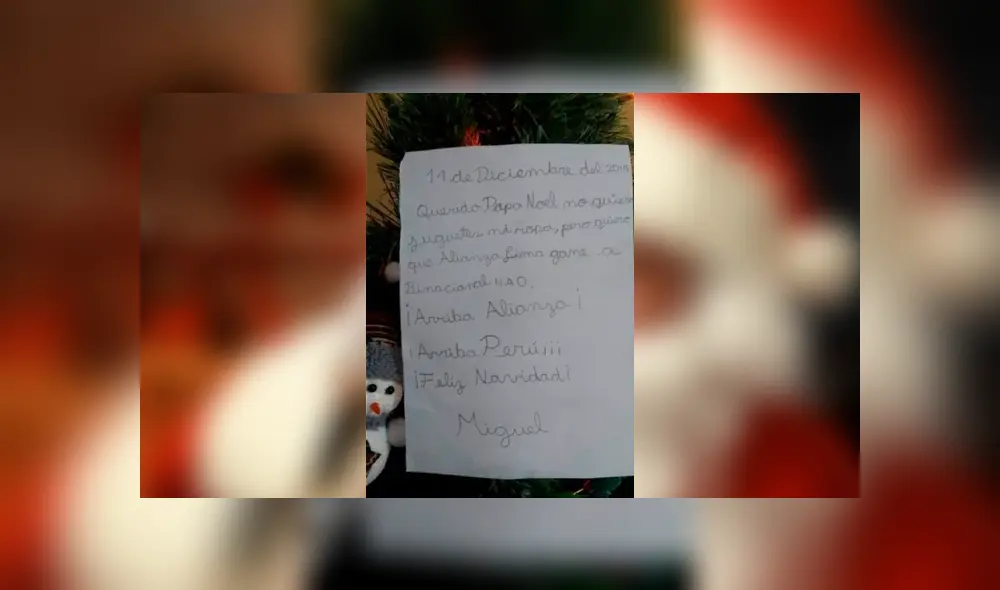 11 de Diciembre del 2019
Querido Papa Noel no quiero
juguetes ni ropa, pero quiero
que Alianza Lima gane a
Binacional 4 A 0.
¡Arriba Alianza¡
¡Arriba Perú¡¡¡
¡Feliz Navidad¡
Miguel